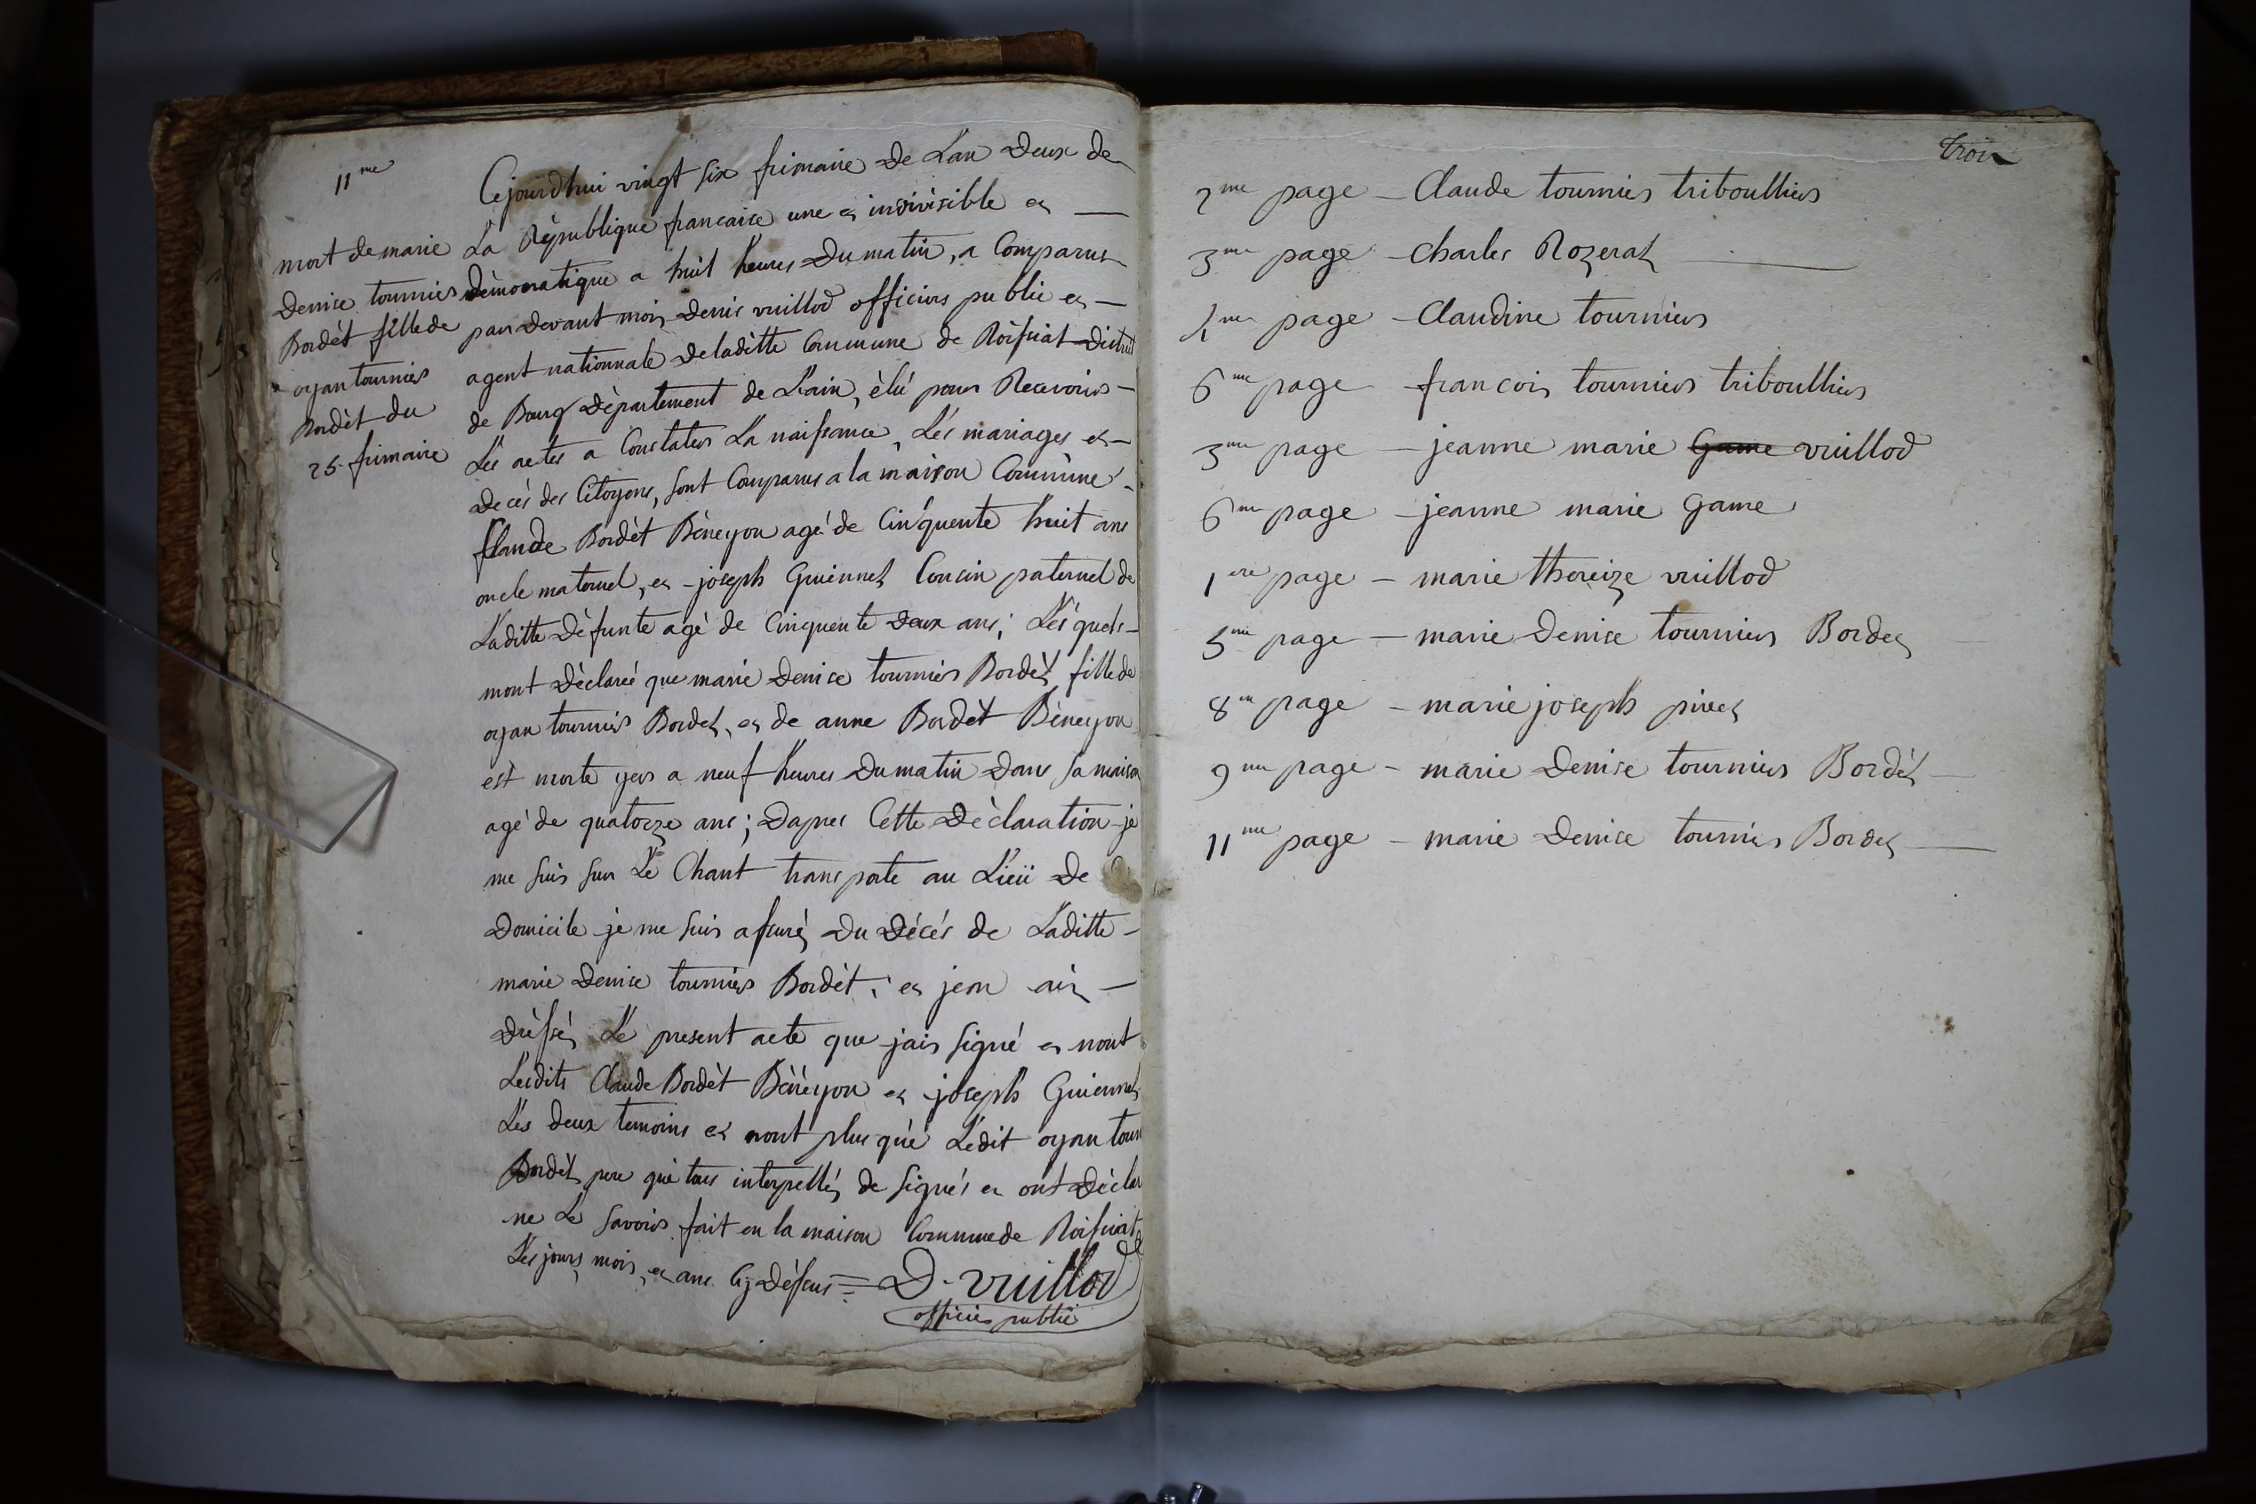 11me
mort de marie
Denice tournier
Bordèt fille de
oyan tournier
Bordèt du
25 frimaire
Cejourdhui vingt six frimaire De L'an Deux de
La République francaise une et indivisible et —
Dèmocratique a huit heures Du matin, a Comparus
par devant moi, Denis vuillod officier public et —
agent nationnale De laditte Commune de Roifiat District
de Bourg Département de L'ain, èlú pour Recevoir —
Lés actes a Constater La naissance, Lés mariages et —
Decés des Citoyens, sont Comparus a la maison Commune
Claude Bordèt Bèneyon agé de Cinquente huit ans
oncle maternel, et joseph Guiennet Cousin paternel de
Laditte Dèfunte agè de Cinquente Deux ans; Lésquels —
mont Dèclareé que marie Denice tournier Bordèt fille de
oyan tournier Bordet, et de anne Bordèt Bèneyon
est morte yer a neuf heures Du matin Dans sa maison
agé de quatorze ans; Dapres Cette Dèclaration je
me suis sur Le Chant transporte au Lieú De
Domicile je me suis assuré Du Décés de Laditte —
marie Denice tournier Bordèt, et jean ait —
Drèssé, Le present acte que jais signé et nont
Lesdits Claude Bordèt Bèneyon et joseph Guiennet
Lés deux temoins et nont plus qué Lédit oyan tour
Bordèt pere qué tous interpellés de signés et ont Dèclar
ne Le savoir fait en la maison Commune de Roifiat
Lés jours, mois, et ans Cy Dèssus = D. vuillod
officier public
trois
2me page — Claude tournier triboullier
3me page — Charles Rozerat —
4me page — Claudine tournier
6me page — francois tournier triboullier
3me page — jeanne marie Game vuillod
6me page — jeanne marie Game
1ere page — marie thereize vuillod
5me page — marie Denise tournier Bordet
8me page — marie joseph pivet
9me page — marie Denise tournier Bordèt —
11me page — marie Denice tournier Bordet —